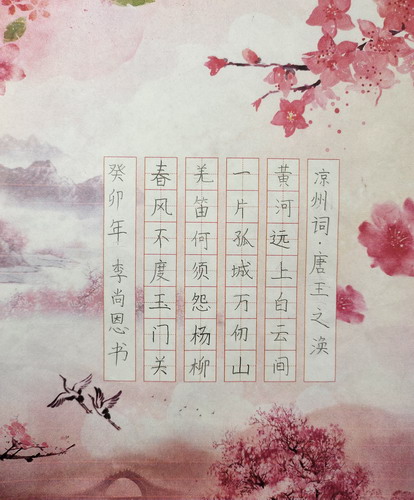 凉州词·唐王之涣
黄河远上白云间
一片孤城万仞山
羌笛何须怨杨柳
春风不度玉门关
癸卯年 李尚恩书